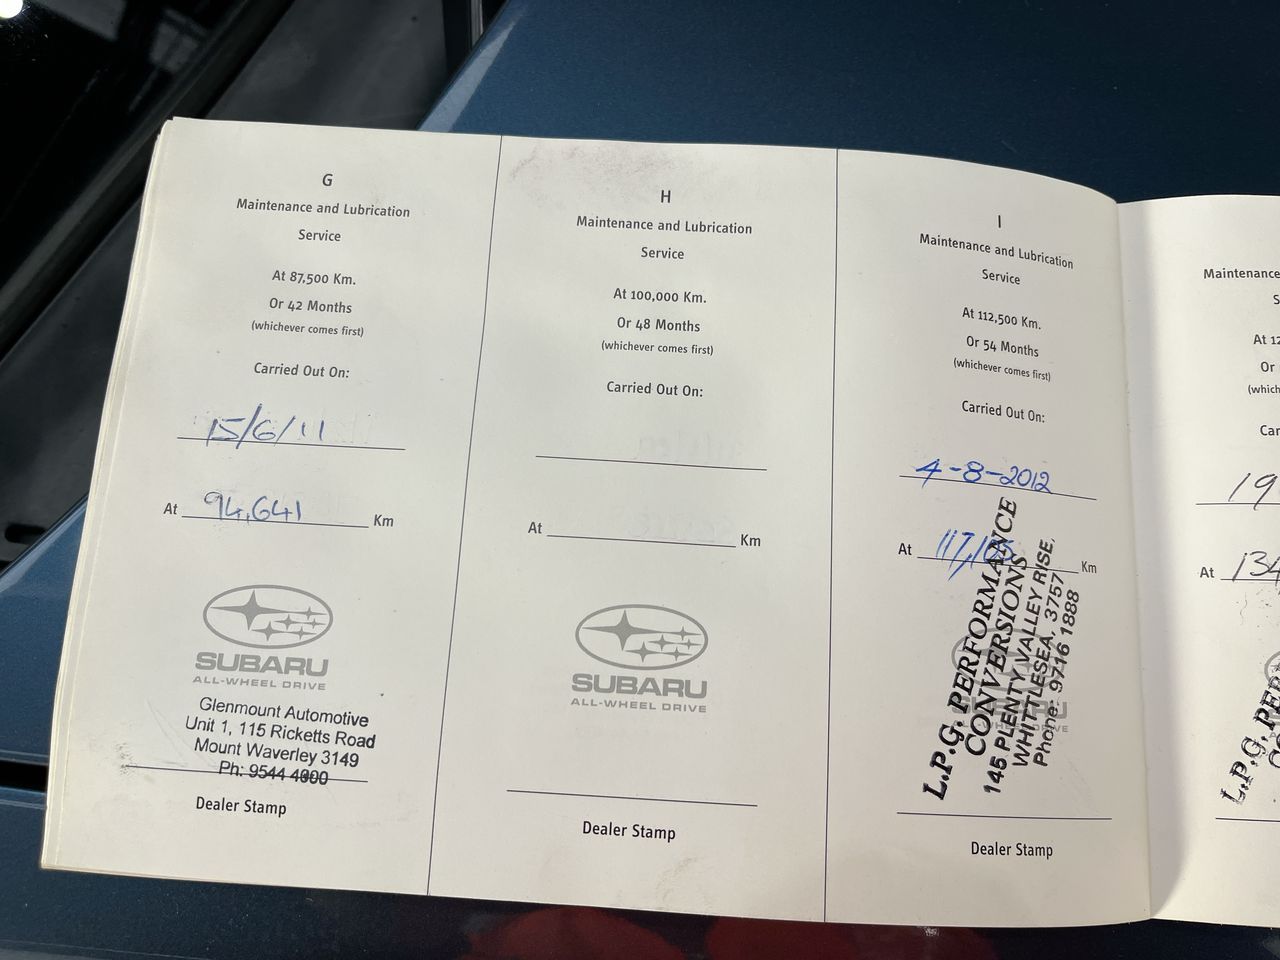 G
Maintenance and Lubrication
Service
At 87,500 Km.
Or 42 Months
(whichever comes first)
Carried Out On:
15/6/11
At 94,641 Km
SUBARU
ALL-WHEEL DRIVE
Glenmount Automotive
Unit 1, 115 Ricketts Road
Mount Waverley 3149
Ph: 9544 4000
Dealer Stamp
H
Maintenance and Lubrication
Service
At 100,000 Km.
Or 48 Months
(whichever comes first)
Carried Out On:
At Km
SUBARU
ALL-WHEEL DRIVE
Dealer Stamp
I
Maintenance and Lubrication
Service
At 112,500 Km.
Or 54 Months
(whichever comes first)
Carried Out On:
4-8-2012
At Km
L.P.G. PERFORMANCE
CONVERSIONS
145 PLENTY VALLEY RISE,
WHITTLESEA, 3757
Phone: 9716 1888
Dealer Stamp
Maintenance
At 12
Or
19
At 134
L.P.G. PER